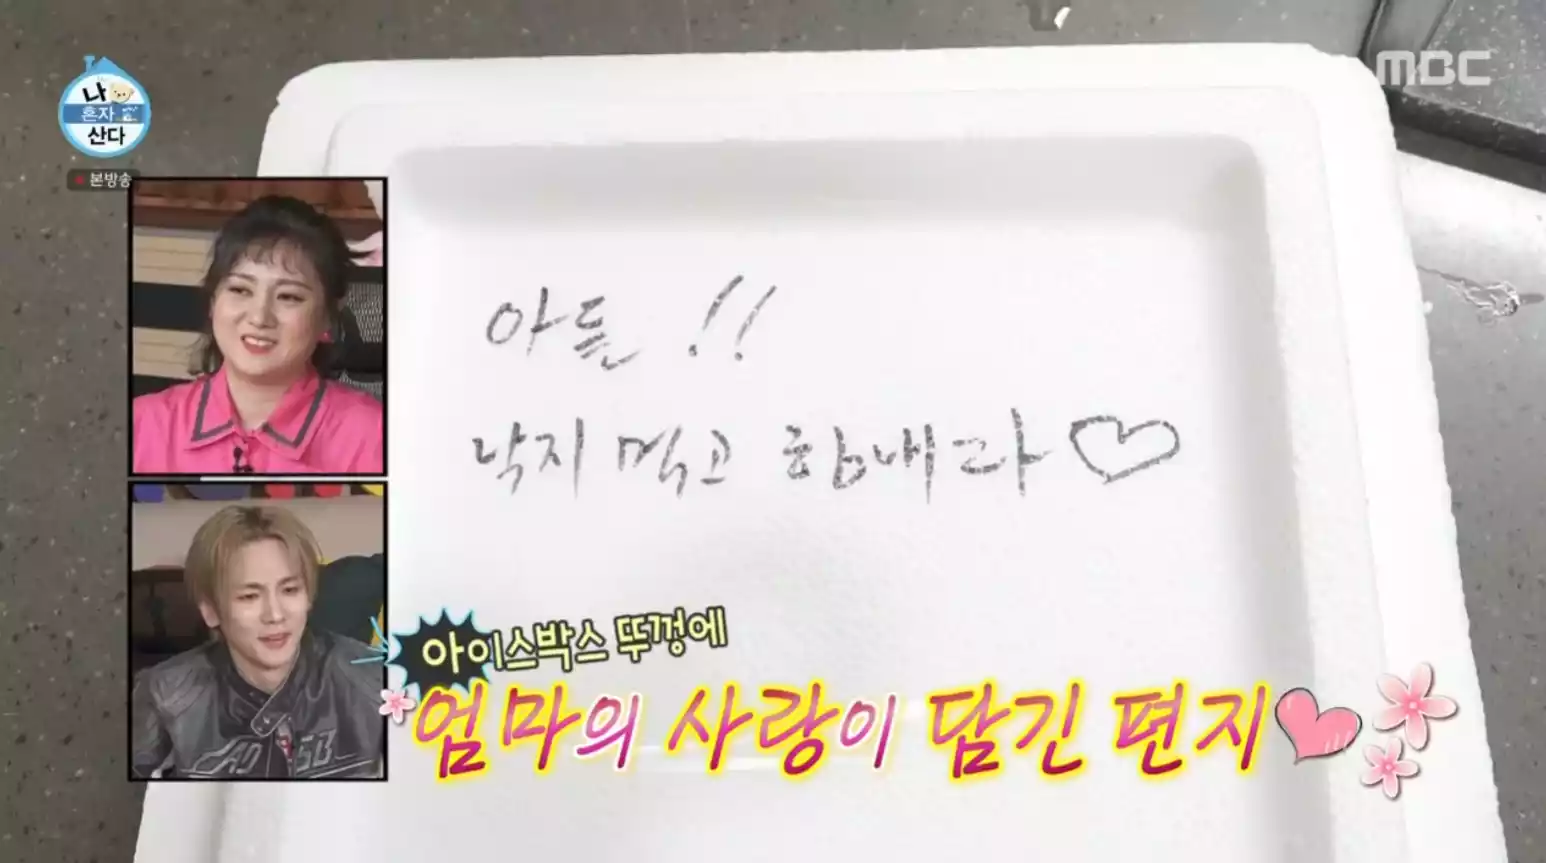 나
혼자
산다
MBC
본방송
아들 !!
낙지 먹고 힘내라 ♡
아이스박스 뚜껑에
엄마의 사랑이 담긴 편지